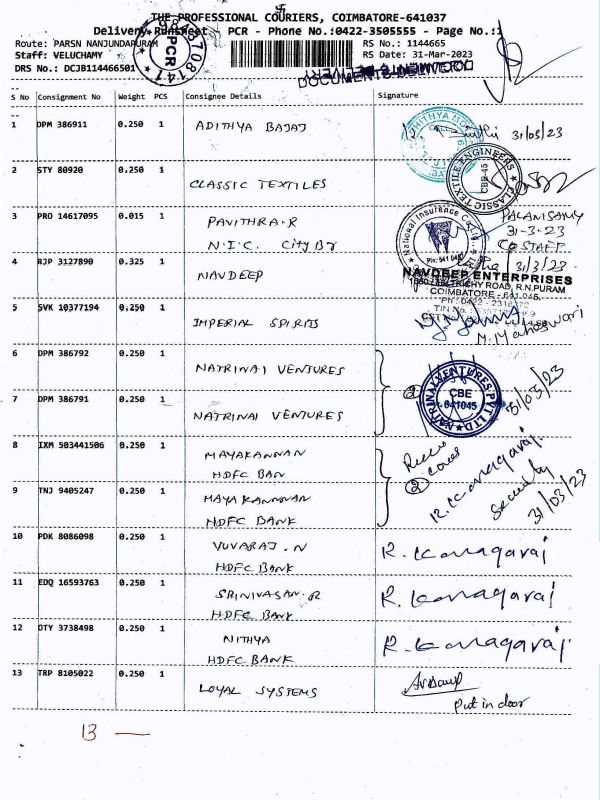 THE PROFESSIONAL COURIERS, COIMBATORE-641037
Delivery Runsheet - PCR - Phone No.:0422-3505555 - Page No.:1
Route: PARSN NANJUNDAPURAM
RS No.: 1144665
Staff: VELUCHAMY
RS Date: 31-Mar-2023
DRS No.: DCJB114466501
PCR
S No Consignment No Weight PCS Consignee Details Signature
1 DPM 386911 0.250 1 ADITHYA BAJAJ 31/03/23
2 STY 80920 0.250 1 CLASSIC TEXTILES
CLASSIC TEXTILE ENGINEERS CBE-45
3 PRO 14617095 0.015 1 PAVITHRA.R PALANISAMY
31-3-23
N.I.C. City Br CO STAFF
National Insurance Co.
4 RJP 3127890 0.325 1 NAVDEEP 31/3/23
NAVDEEP ENTERPRISES
TRICHY ROAD, R.N.PURAM
COIMBATORE - 641 045.
5 SVK 10377194 0.250 1 IMPERIAL SPIRITS
M. Maheswari
6 DPM 386792 0.250 1 NATRINAI VENTURES
7 DPM 386791 0.250 1 NATRINAI VENTURES
2
NATRINAI VENTURES PVT LTD CBE 641045
31/03/23
8 IXM 503441506 0.250 1 MAYAKANNAN
HDFC BAN
9 TNJ 9405247 0.250 1 MAYAKANNNAN
HDFC BANK
2
R. Kanagaraj
Security
31/03/23
10 PDK 8086098 0.250 1 YUVARAJ.N R. Kanagaraj
HDFC BANK
11 EDQ 16593763 0.250 1 SRINIVASAN.R R. Kanagaraj
HDFC BANK
12 OTY 3738498 0.250 1 NITHYA R. Kanagaraj
HDFC BANK
13 TRP 8105022 0.250 1 LOYAL SYSTEMS
Put in door
13 —